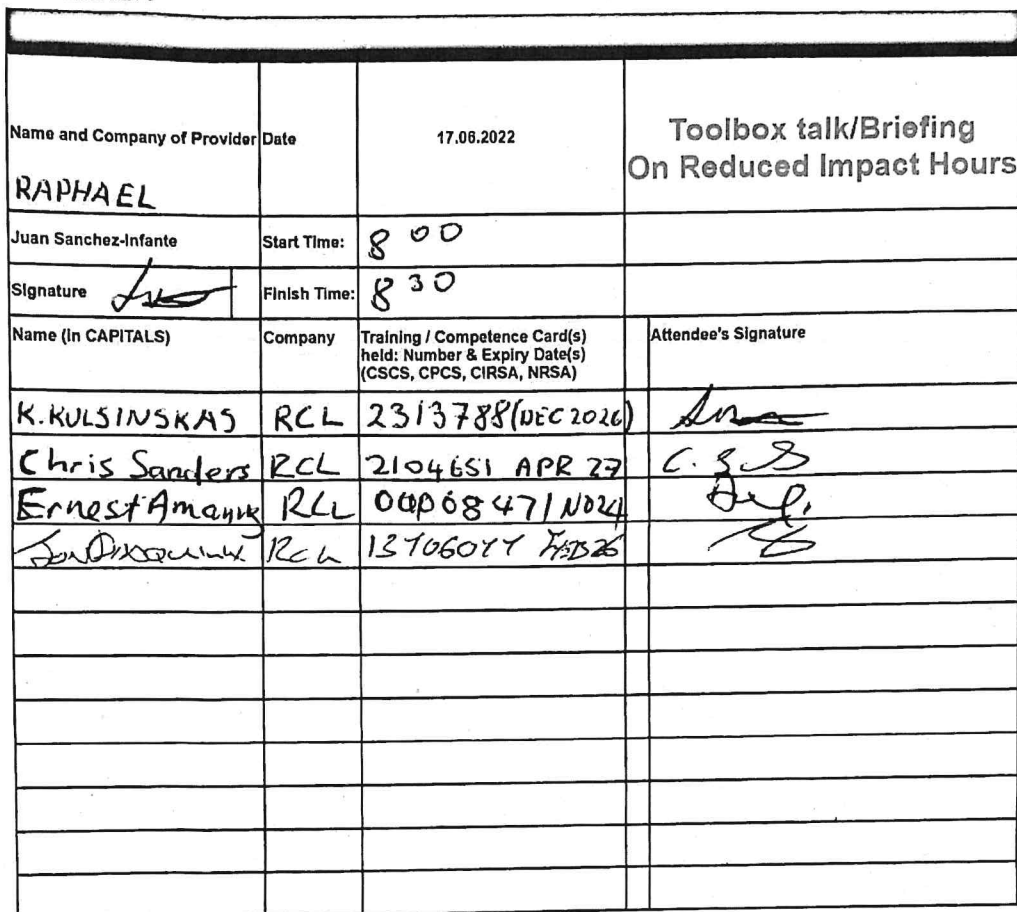 Name and Company of Provider Date 17.06.2022 Toolbox talk/Briefing
On Reduced Impact Hours
RAPHAEL
Juan Sanchez-Infante Start Time: 8 00
Signature Finish Time: 8 30
Name (in CAPITALS) Company Training / Competence Card(s) held: Number & Expiry Date(s) (CSCS, CPCS, CIRSA, NRSA) Attendee's Signature
K. KULSINSKAS RCL 2313788 (DEC 2026)
Chris Sanders RCL 2104651 APR 27 C.
Ernest RCL
RCL